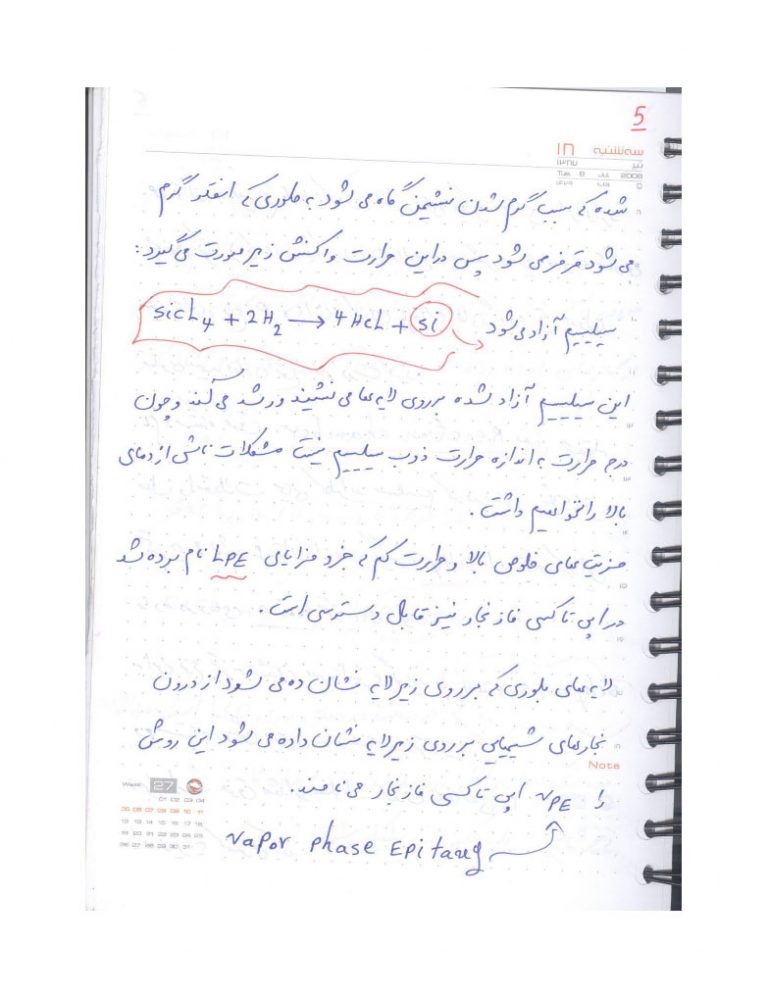 5
سه‌شنبه ۱۸
تیر ۱۳۸۷
Tue 8 Jul 2008
شده که سبب گرم شدن نشیمن گاه می شود به طوری که انقدر گرم
می شود قرمز می شود پس در این حرارت واکنش زیر صورت می گیرد:
sicL4 + 2H2 → 4HcL + si سیلیسیم آزاد می شود
این سیلیسیم آزاد شده بر روی لایه ها می نشیند و رشد می کند و چون
درجه حرارت به اندازه حرارت ذوب سیلیسیم نیست مشکلات ناشی از دمای
بالا را نخواهیم داشت.
مزیت های خلوص بالا و حرارت کم که جزء مزایای LPE نام برده شد
در اپی تاکسی فاز بخار نیز قابل دسترسی است.
لایه های بلوری که بر روی زیر لایه نشان ده می شود از درون
بخارهای شیمیایی بر روی زیر لایه نشان داده می شود این روش
Note
را VPE اپی تاکسی فاز بخار می نامند.
vapor phase Epitaxy
Week 27
01 02 03 04
05 06 07 08 09 10 11
12 13 14 15 16 17 18
19 20 21 22 23 24 25
26 27 28 29 30 31